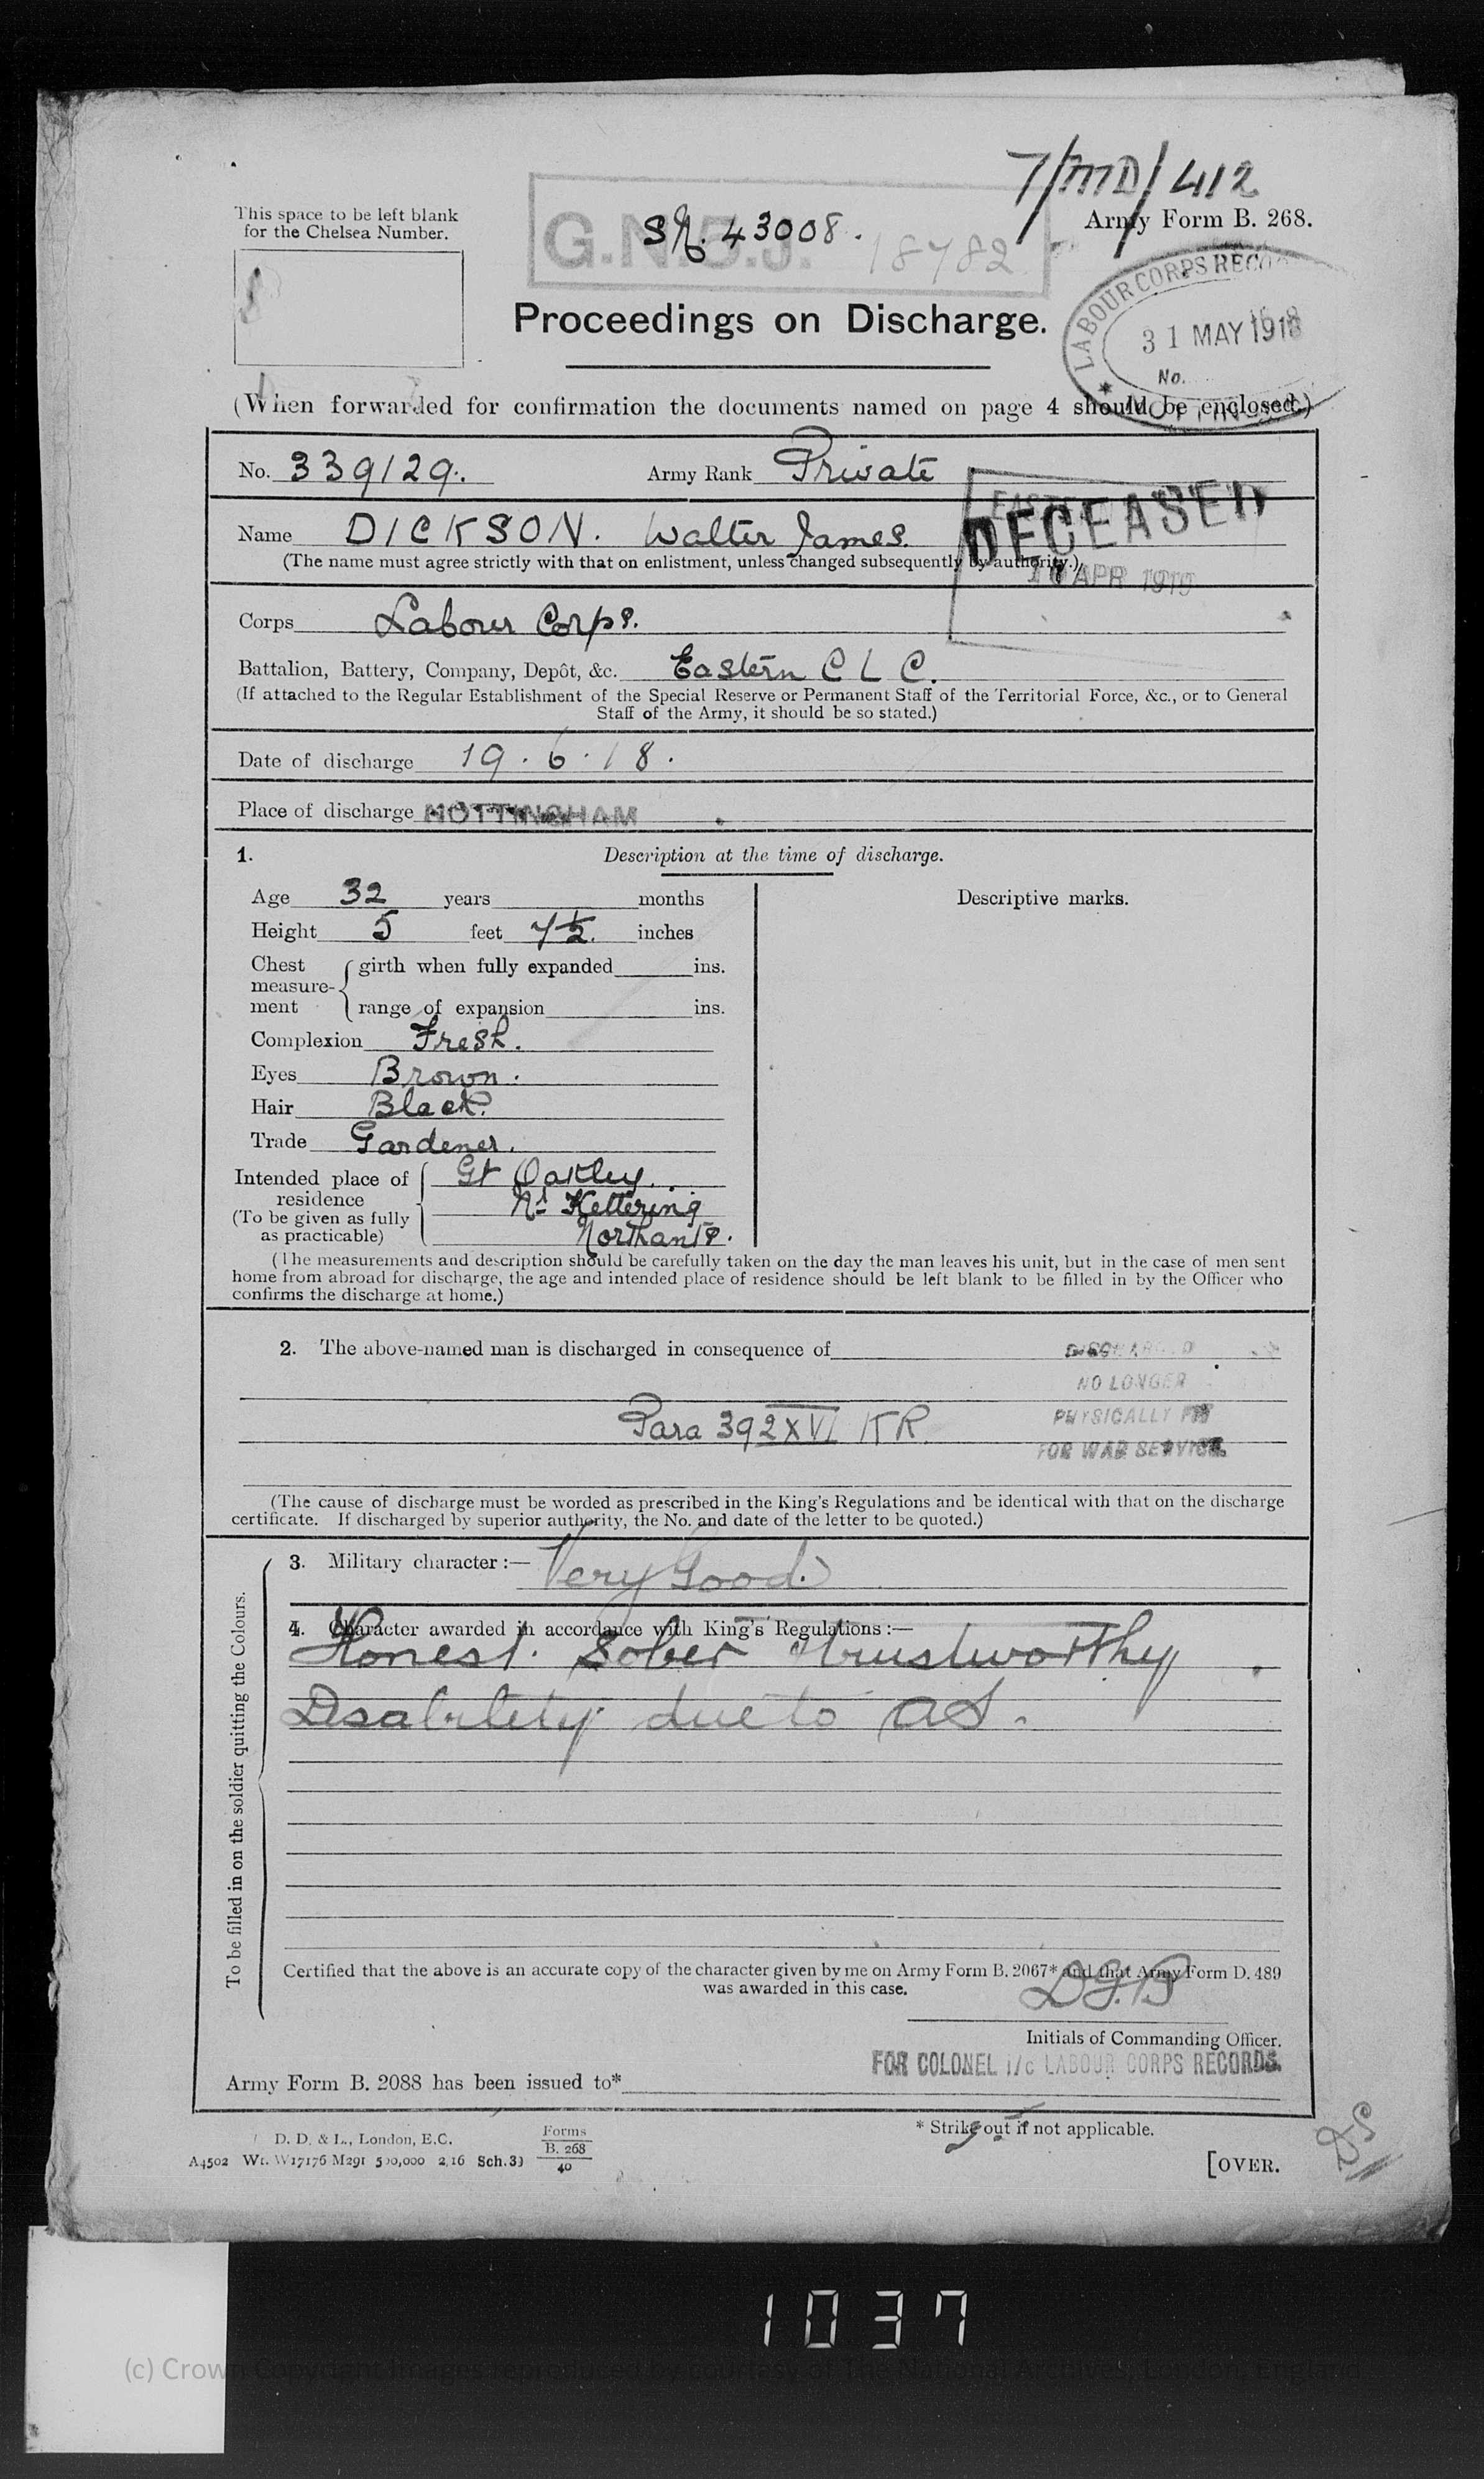 7/MD/412
This space to be left blank
for the Chelsea Number.
G.N.5.J.
SN. 43008.
18782
Army Form B. 268.
LABOUR CORPS RECO
31 MAY 1918
No.
Proceedings on Discharge.
(When forwarded for confirmation the documents named on page 4 should be enclosed.)
No. 339129.
Army Rank Private
Name DICKSON. Walter James.
DECEASED
(The name must agree strictly with that on enlistment, unless changed subsequently by authority.)
APR 1919
Corps Labour Corps.
Battalion, Battery, Company, Depôt, &c. Eastern C L C.
(If attached to the Regular Establishment of the Special Reserve or Permanent Staff of the Territorial Force, &c., or to General
Staff of the Army, it should be so stated.)
Date of discharge 19.6.18.
Place of discharge NOTTINGHAM
1. Description at the time of discharge.
Age 32 years months
Descriptive marks.
Height 5 feet 7½ inches
Chest measurement
girth when fully expanded ins.
range of expansion ins.
Complexion Fresh.
Eyes Brown.
Hair Black.
Trade Gardener.
Intended place of
residence
(To be given as fully
as practicable)
Gt Oakley.
Nr Kettering
Northants.
(The measurements and description should be carefully taken on the day the man leaves his unit, but in the case of men sent
home from abroad for discharge, the age and intended place of residence should be left blank to be filled in by the Officer who
confirms the discharge at home.)
2. The above-named man is discharged in consequence of
NO LONGER
PHYSICALLY FIT
FOR WAR SERVICE.
Para 392 XVI KR.
(The cause of discharge must be worded as prescribed in the King's Regulations and be identical with that on the discharge
certificate. If discharged by superior authority, the No. and date of the letter to be quoted.)
To be filled in on the soldier quitting the Colours.
3. Military character:— Very Good.
4. Character awarded in accordance with King's Regulations:—
Honest. Sober & trustworthy.
Disability due to AS.
Certified that the above is an accurate copy of the character given by me on Army Form B. 2067* and that Army Form D. 489
was awarded in this case.
DGB
Initials of Commanding Officer.
FOR COLONEL i/c LABOUR CORPS RECORDS.
Army Form B. 2088 has been issued to*
* Strike out if not applicable.
D. D. & L., London, E.C.
A4502 Wt. W17176 M291 500,000 2/16 Sch. 39
Forms
B. 268
40
[OVER.
1037
(c) Crown Copyright Images reproduced by courtesy of The National Archives, London, England